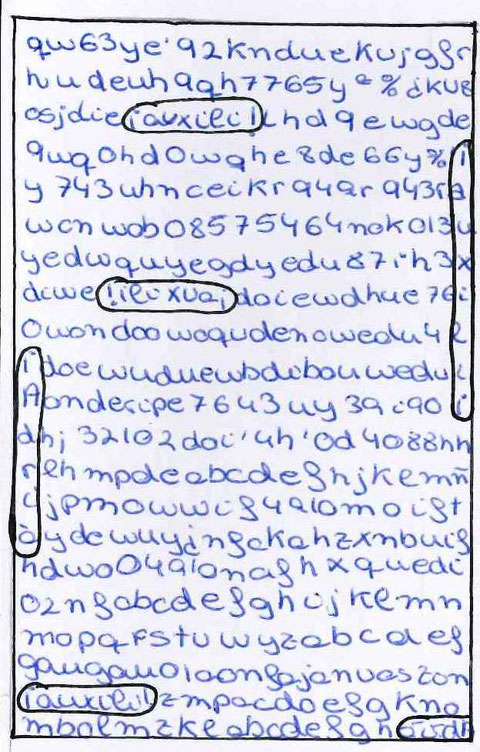 qw63ye'92knduekujgfr
hudeuh9qh7765yª%iku8
osjdie¡auxili!lhd9ewgde
9wq0hd0wqhe8de66y%¡
y743uhnceikr94qr943ra
wcnwob08575464nok013u
yedwquyegdyedu87ih3x
diwe!ilixua¡doiewdhue76i
0wondoowoqudenowedu4l
¡doewuduewbdibouwedui
Aondesipe7643uy39i90¡
dhj32102doi'4h'0d4088hh
rlhmpdeabcdefhjklmmñ
ijpmowwif4910moift
àydewuyinfckahzxnbuif
hdwo04910nafhxquedi
02nfabcdefghijklmn
mopqrstuwyzabcdef
gaugau010onfajanvaszon
¡auxili!zmpacdoefgkno
mbolmzkleabcdefgh